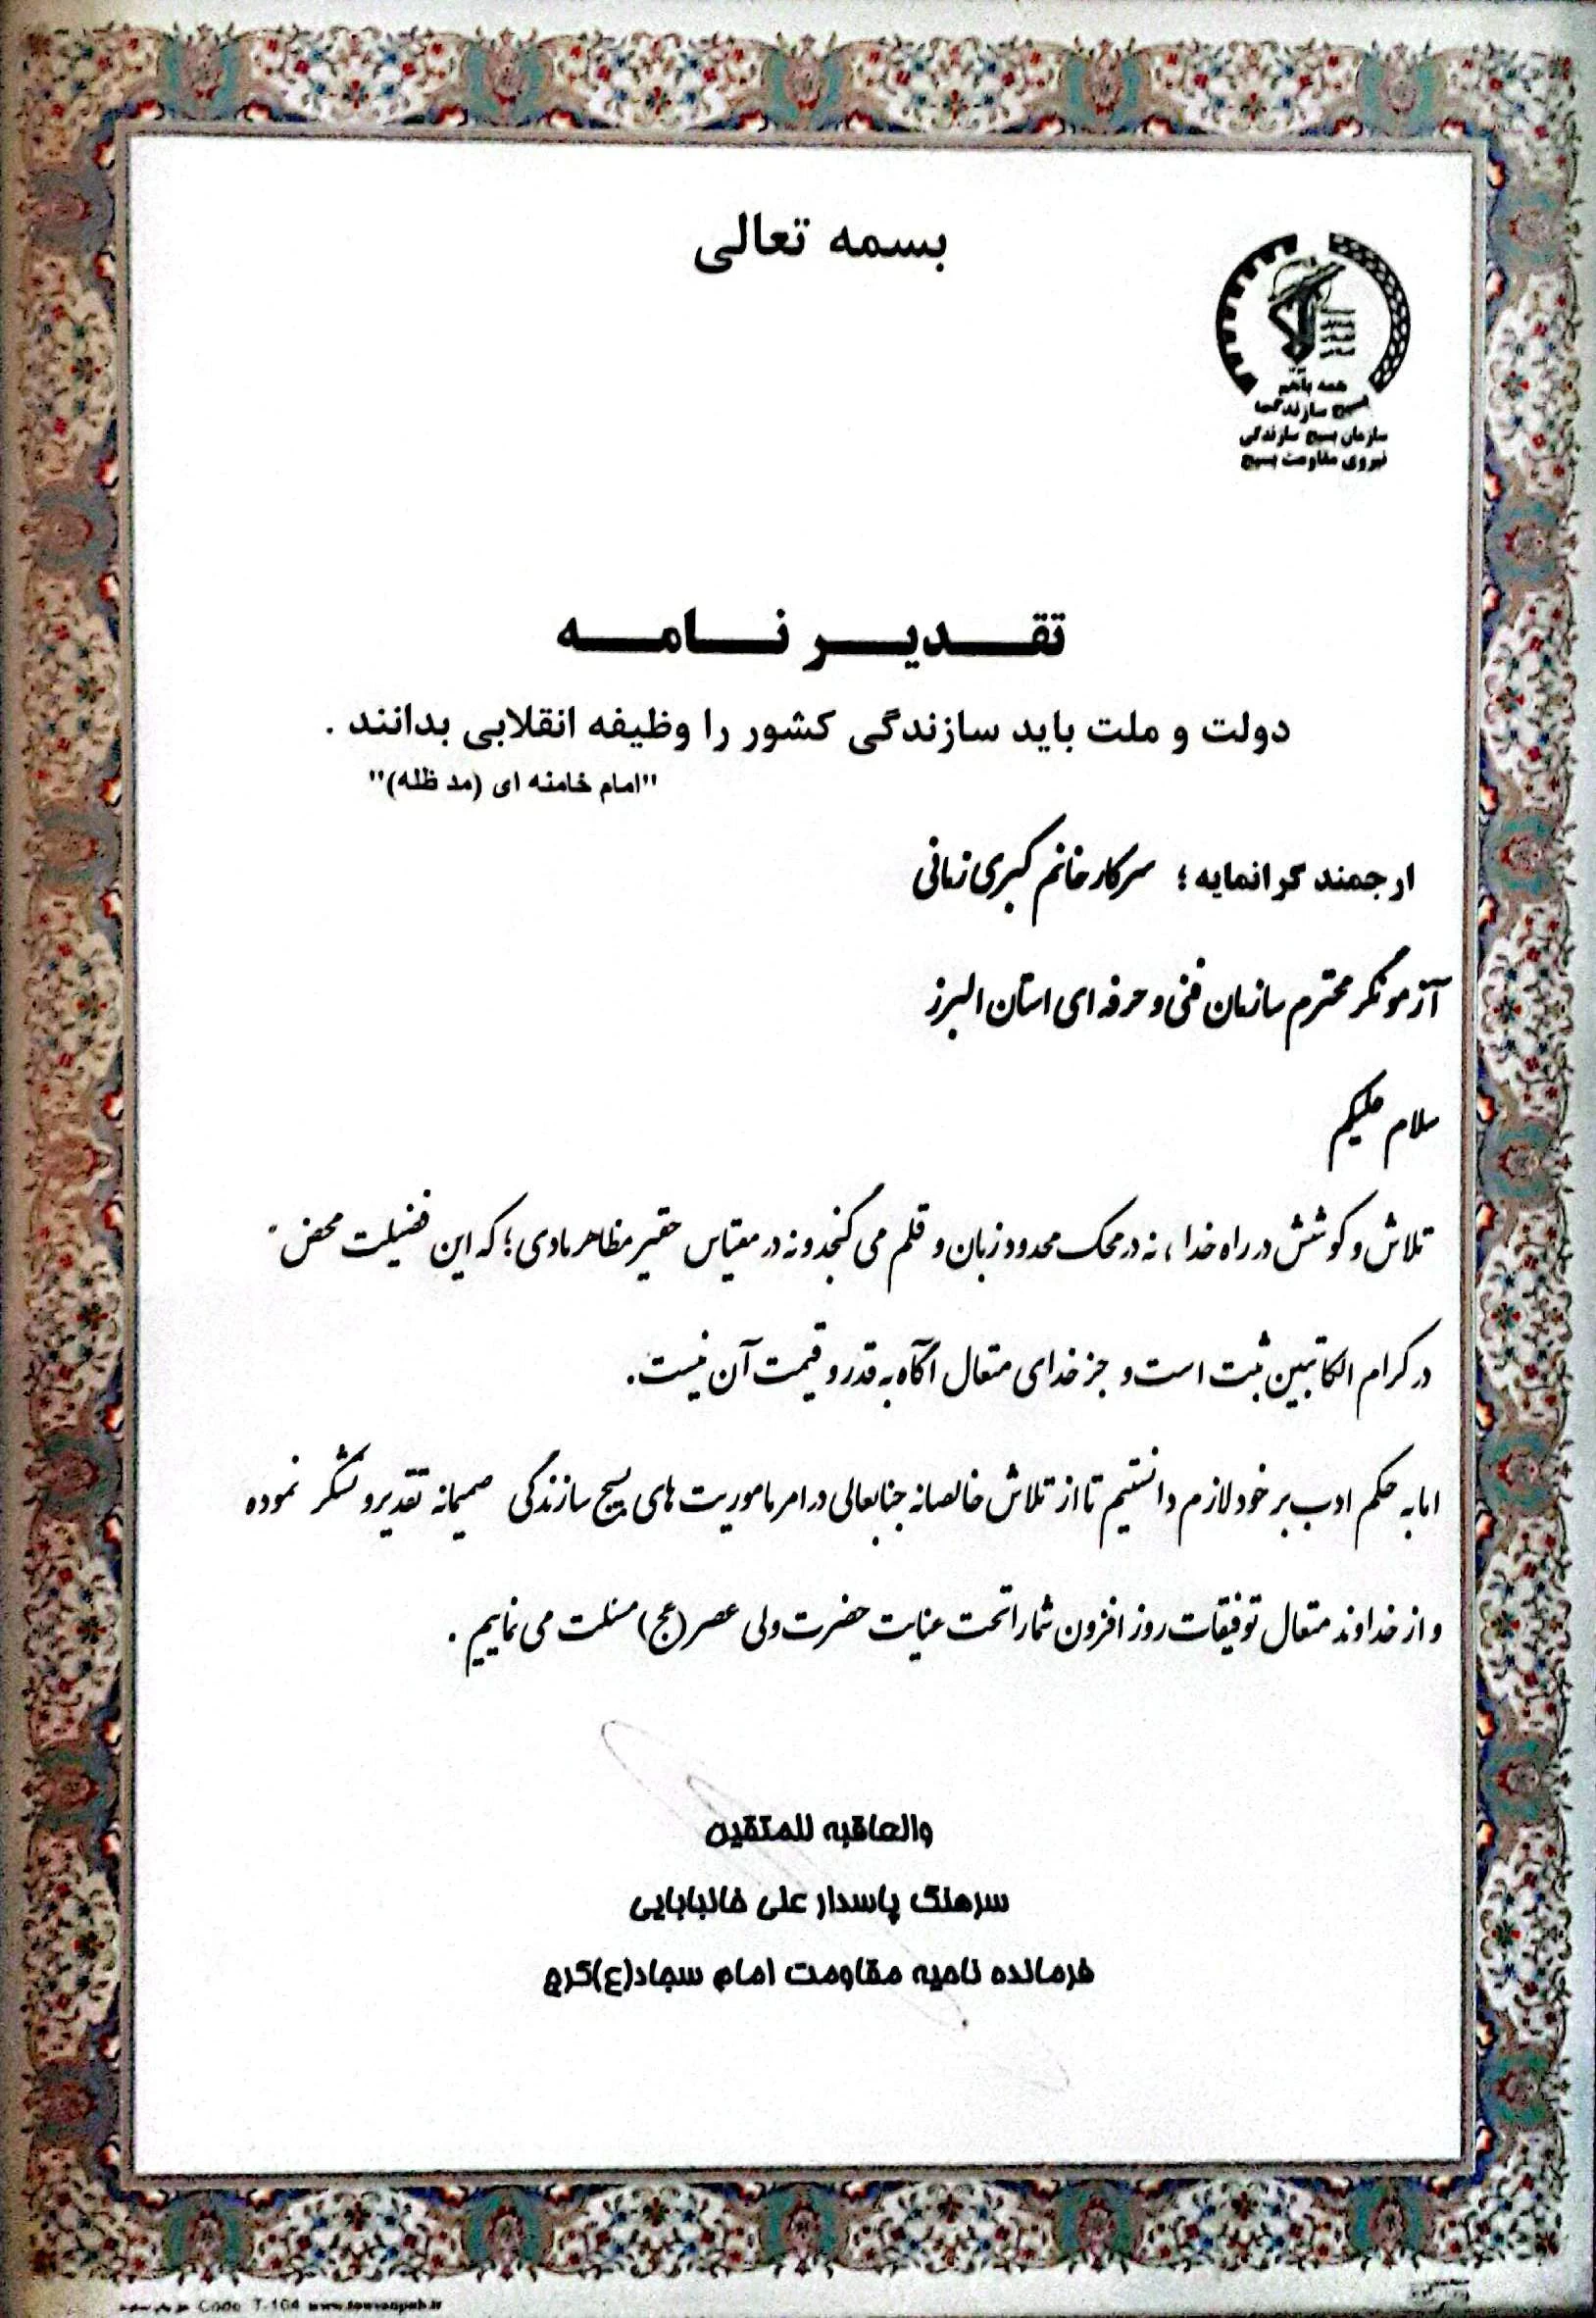 بسمه تعالی
همه باهم
بسیج سازندگی
سازمان بسیج سازندگی
نیروی مقاومت بسیج
تقدیر نامه
دولت و ملت باید سازندگی کشور را وظیفه انقلابی بدانند .
"امام خامنه ای (مد ظله)"
ارجمند گرانمایه ؛ سرکار خانم کبری زمانی
آزمونگر محترم سازمان فنی و حرفه ای استان البرز
سلام علیکم
تلاش و کوشش در راه خدا ، نه در محک محدود زبان و قلم می گنجد و نه در مقیاس حقیر مظاهر مادی ؛ که این فضیلت محض
در کرام الکاتبین ثبت است و جز خدای متعال آگاه به قدر و قیمت آن نیست.
اما به حکم ادب بر خود لازم دانستیم تا از تلاش خالصانه جنابعالی در امر ماموریت های بسیج سازندگی صمیمانه تقدیر و تشکر نموده
و از خداوند متعال توفیقات روز افزون شما را تحت عنایت حضرت ولی عصر (عج) مسئلت می نماییم .
والعاقبه للمتقین
سرهنگ پاسدار علی خالبابایی
فرمانده ناحیه مقاومت امام سجاد(ع)کرج
Code T-104